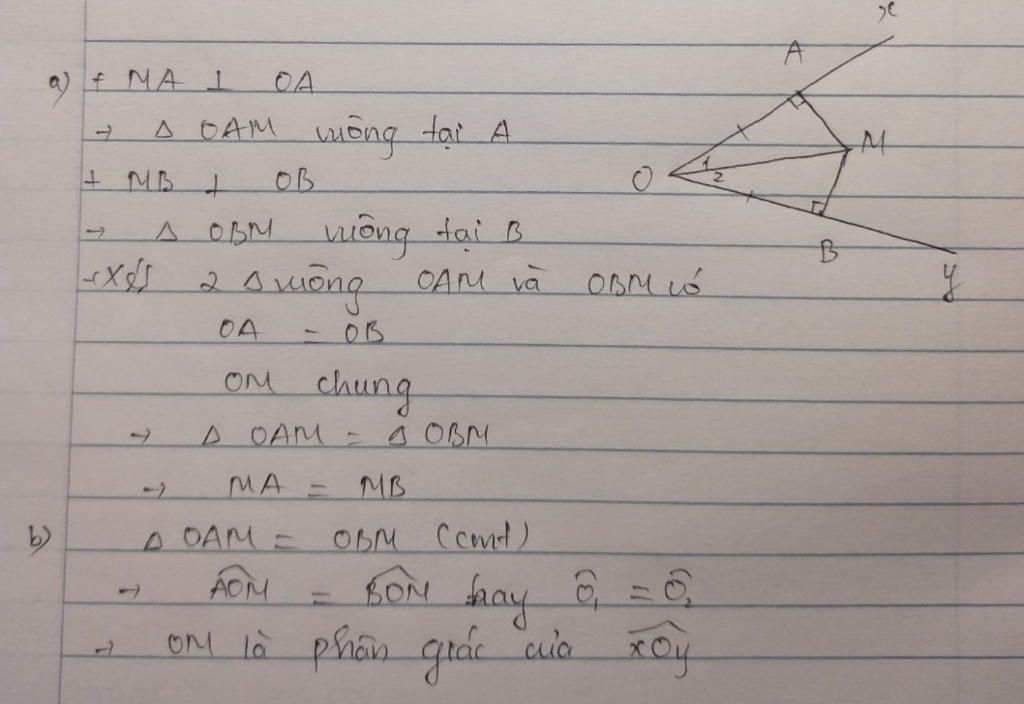 x
A
M
O
1
2
B
y
a) + MA ⊥ OA
→ Δ OAM vuông tại A
+ MB ⊥ OB
→ Δ OBM vuông tại B
2 Δ vuông OAM và OBM có
OA = OB
OM chung
→ Δ OAM = Δ OBM
→ MA = MB
b) Δ OAM = OBM (cmt)
→ \widehat{AOM} = \widehat{BOM} hay Ô₁ = Ô₂
→ OM là phân giác của \widehat{xOy}